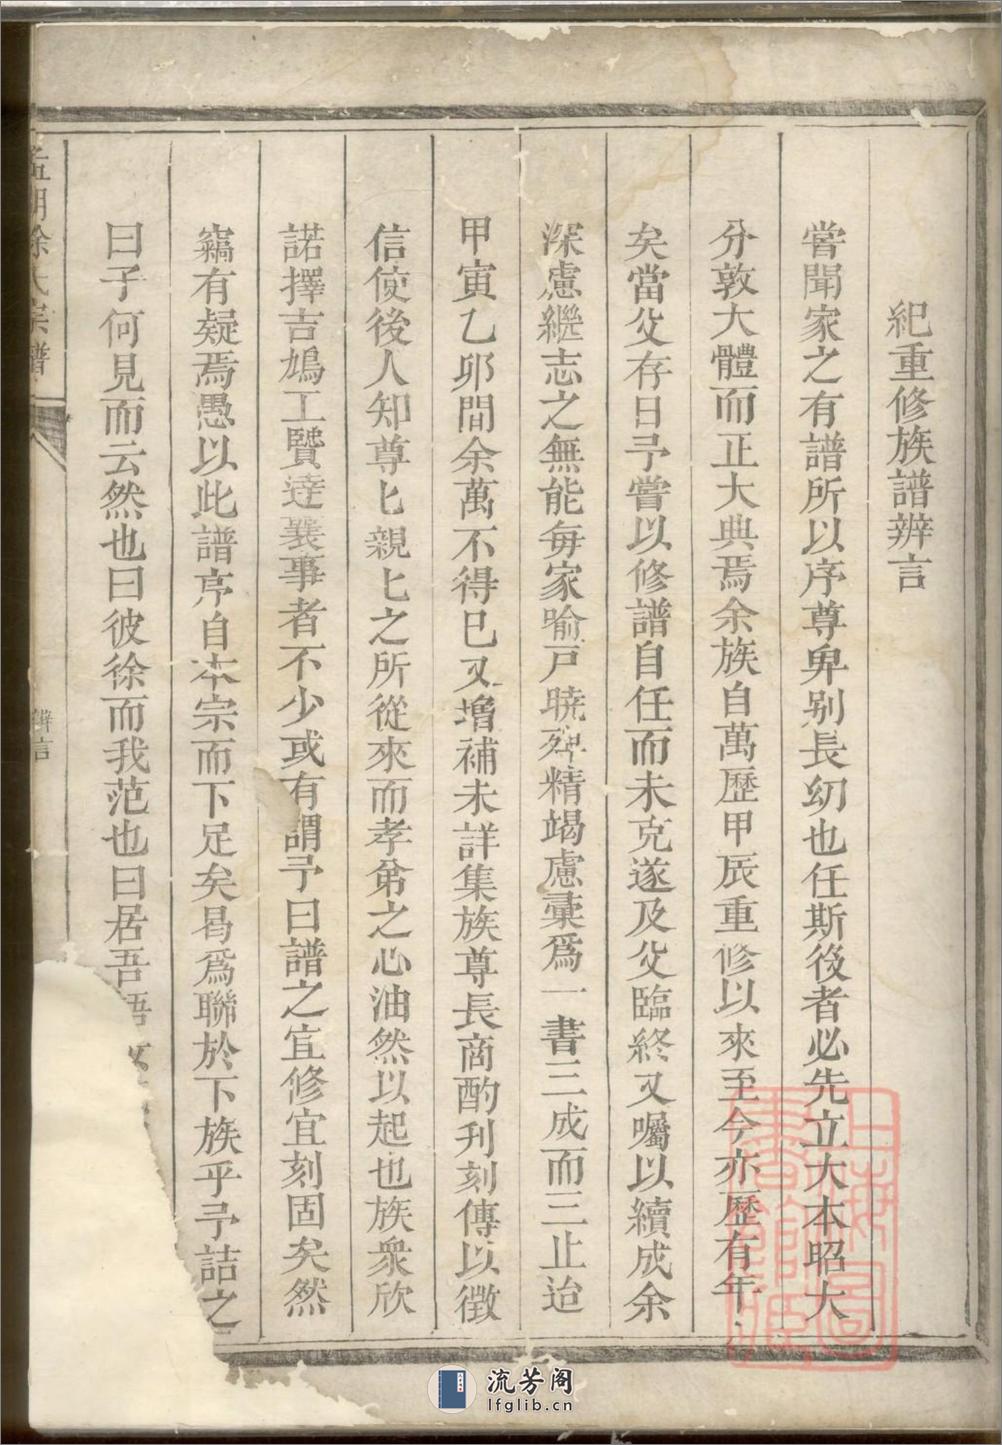 紀重修族譜辨言
嘗聞家之有譜所以序尊卑别長幼也任斯後者必先立大本昭大
分敦大體而正大典焉余族自萬歷甲辰重修以來至今亦歷有年
矣當父存日予嘗以修譜自任而未克遂及父臨終又囑以續成余
深慮繼志之無能每家喻戸曉殫精竭慮彚爲一書三成而三止迨
甲寅乙卯間余萬不得已又增補未詳集族尊長商酌刋刻傳以徵
信使後人知尊匕親匕之所從來而孝弟之心油然以起也族衆欣
諾擇吉鳩工賢達襄事者不少或有謂予曰譜之宜修宜刻固矣然
竊有疑焉愚以此譜序自本宗而下足矣曷爲聯於下族乎予詰之
曰子何見而云然也曰彼徐而我范也曰居吾語
徐氏宗譜
辨言
上海圖書館藏
流芳阁
lfglib.cn